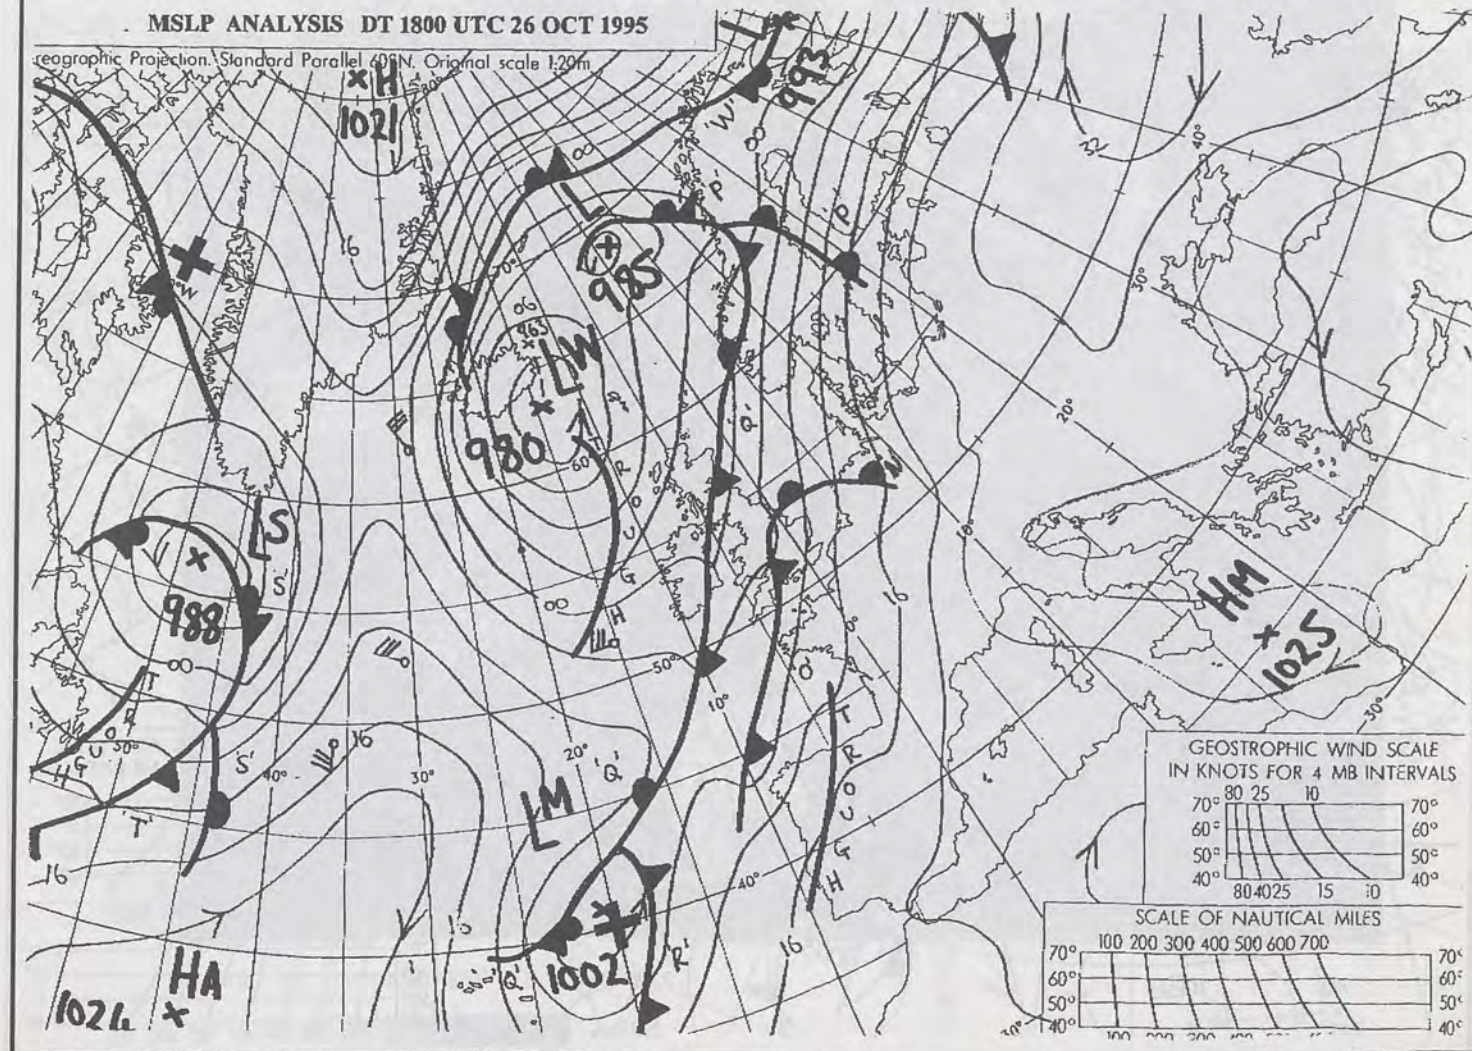 . MSLP ANALYSIS DT 1800 UTC 26 OCT 1995
reographic Projection. Standard Parallel 60°N. Original scale 1:20m
H
1021
L
993
'W'
00
00
80°
40°
32
L
'P'
P
985
16
70°
30°
°W
06
963
LW
980
'Q'
60°
20°
10°
TROUGH
LS
'S'
988
00
00
16
HM
1025
50°
0°
'O'
10°
30°
TROUGH
50°
'S'
40°
16
30°
20°
'Q'
LM
TROUGH
'T'
16
40°
16
16
'R'
HA
1024
'Q'
1002
GEOSTROPHIC WIND SCALE
IN KNOTS FOR 4 MB INTERVALS
80 25 10
70° 70°
60° 60°
50° 50°
40° 40°
80 40 25 15 10
SCALE OF NAUTICAL MILES
100 200 300 400 500 600 700
70° 70°
60° 60°
50° 50°
40° 40°